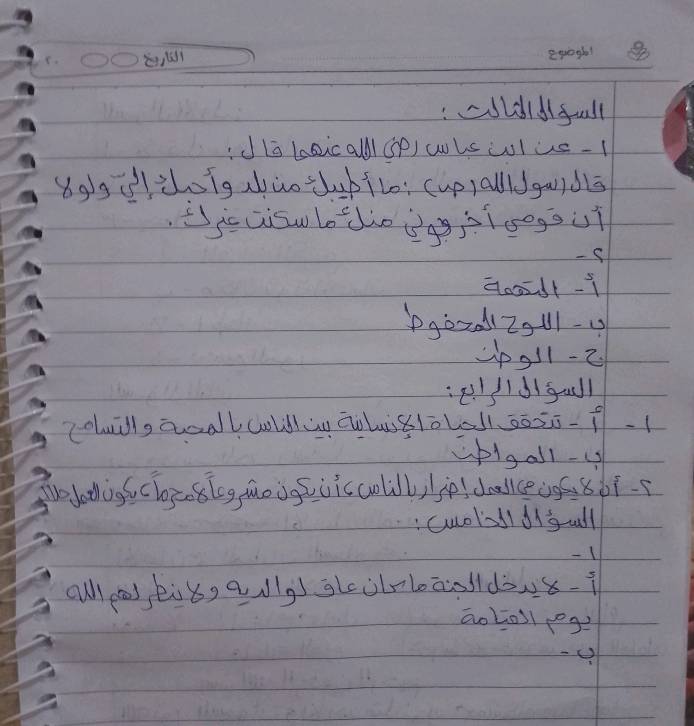 الموضوع
التاريخ
السؤال الثالث :
١- عن ابن عباس رضي الله عنهما قال :
قال رسول الله (ص) : ما أطيبك من بلد وأحبك إليّ ولولا
أن قومي أخرجوني منك ما سكنت غيرك .
٢-
أ- التهمة
ب- اللوح المحفوظ
ج- الوطن
السؤال الرابع :
١- أ- تتحقق الحياة الإنسانية بين الناس بالمحبة والتسامح
ب- المواطن
٢- أن لا يكون في العمل إضرار بالناس ، أن يكون مشروعاً لا محرماً ، يكون العمل
السؤال الخامس :
١-
أ- لا يدخل الجنة عاق لوالديه ولا ينظر لهم الله
يوم القيامة
ب-